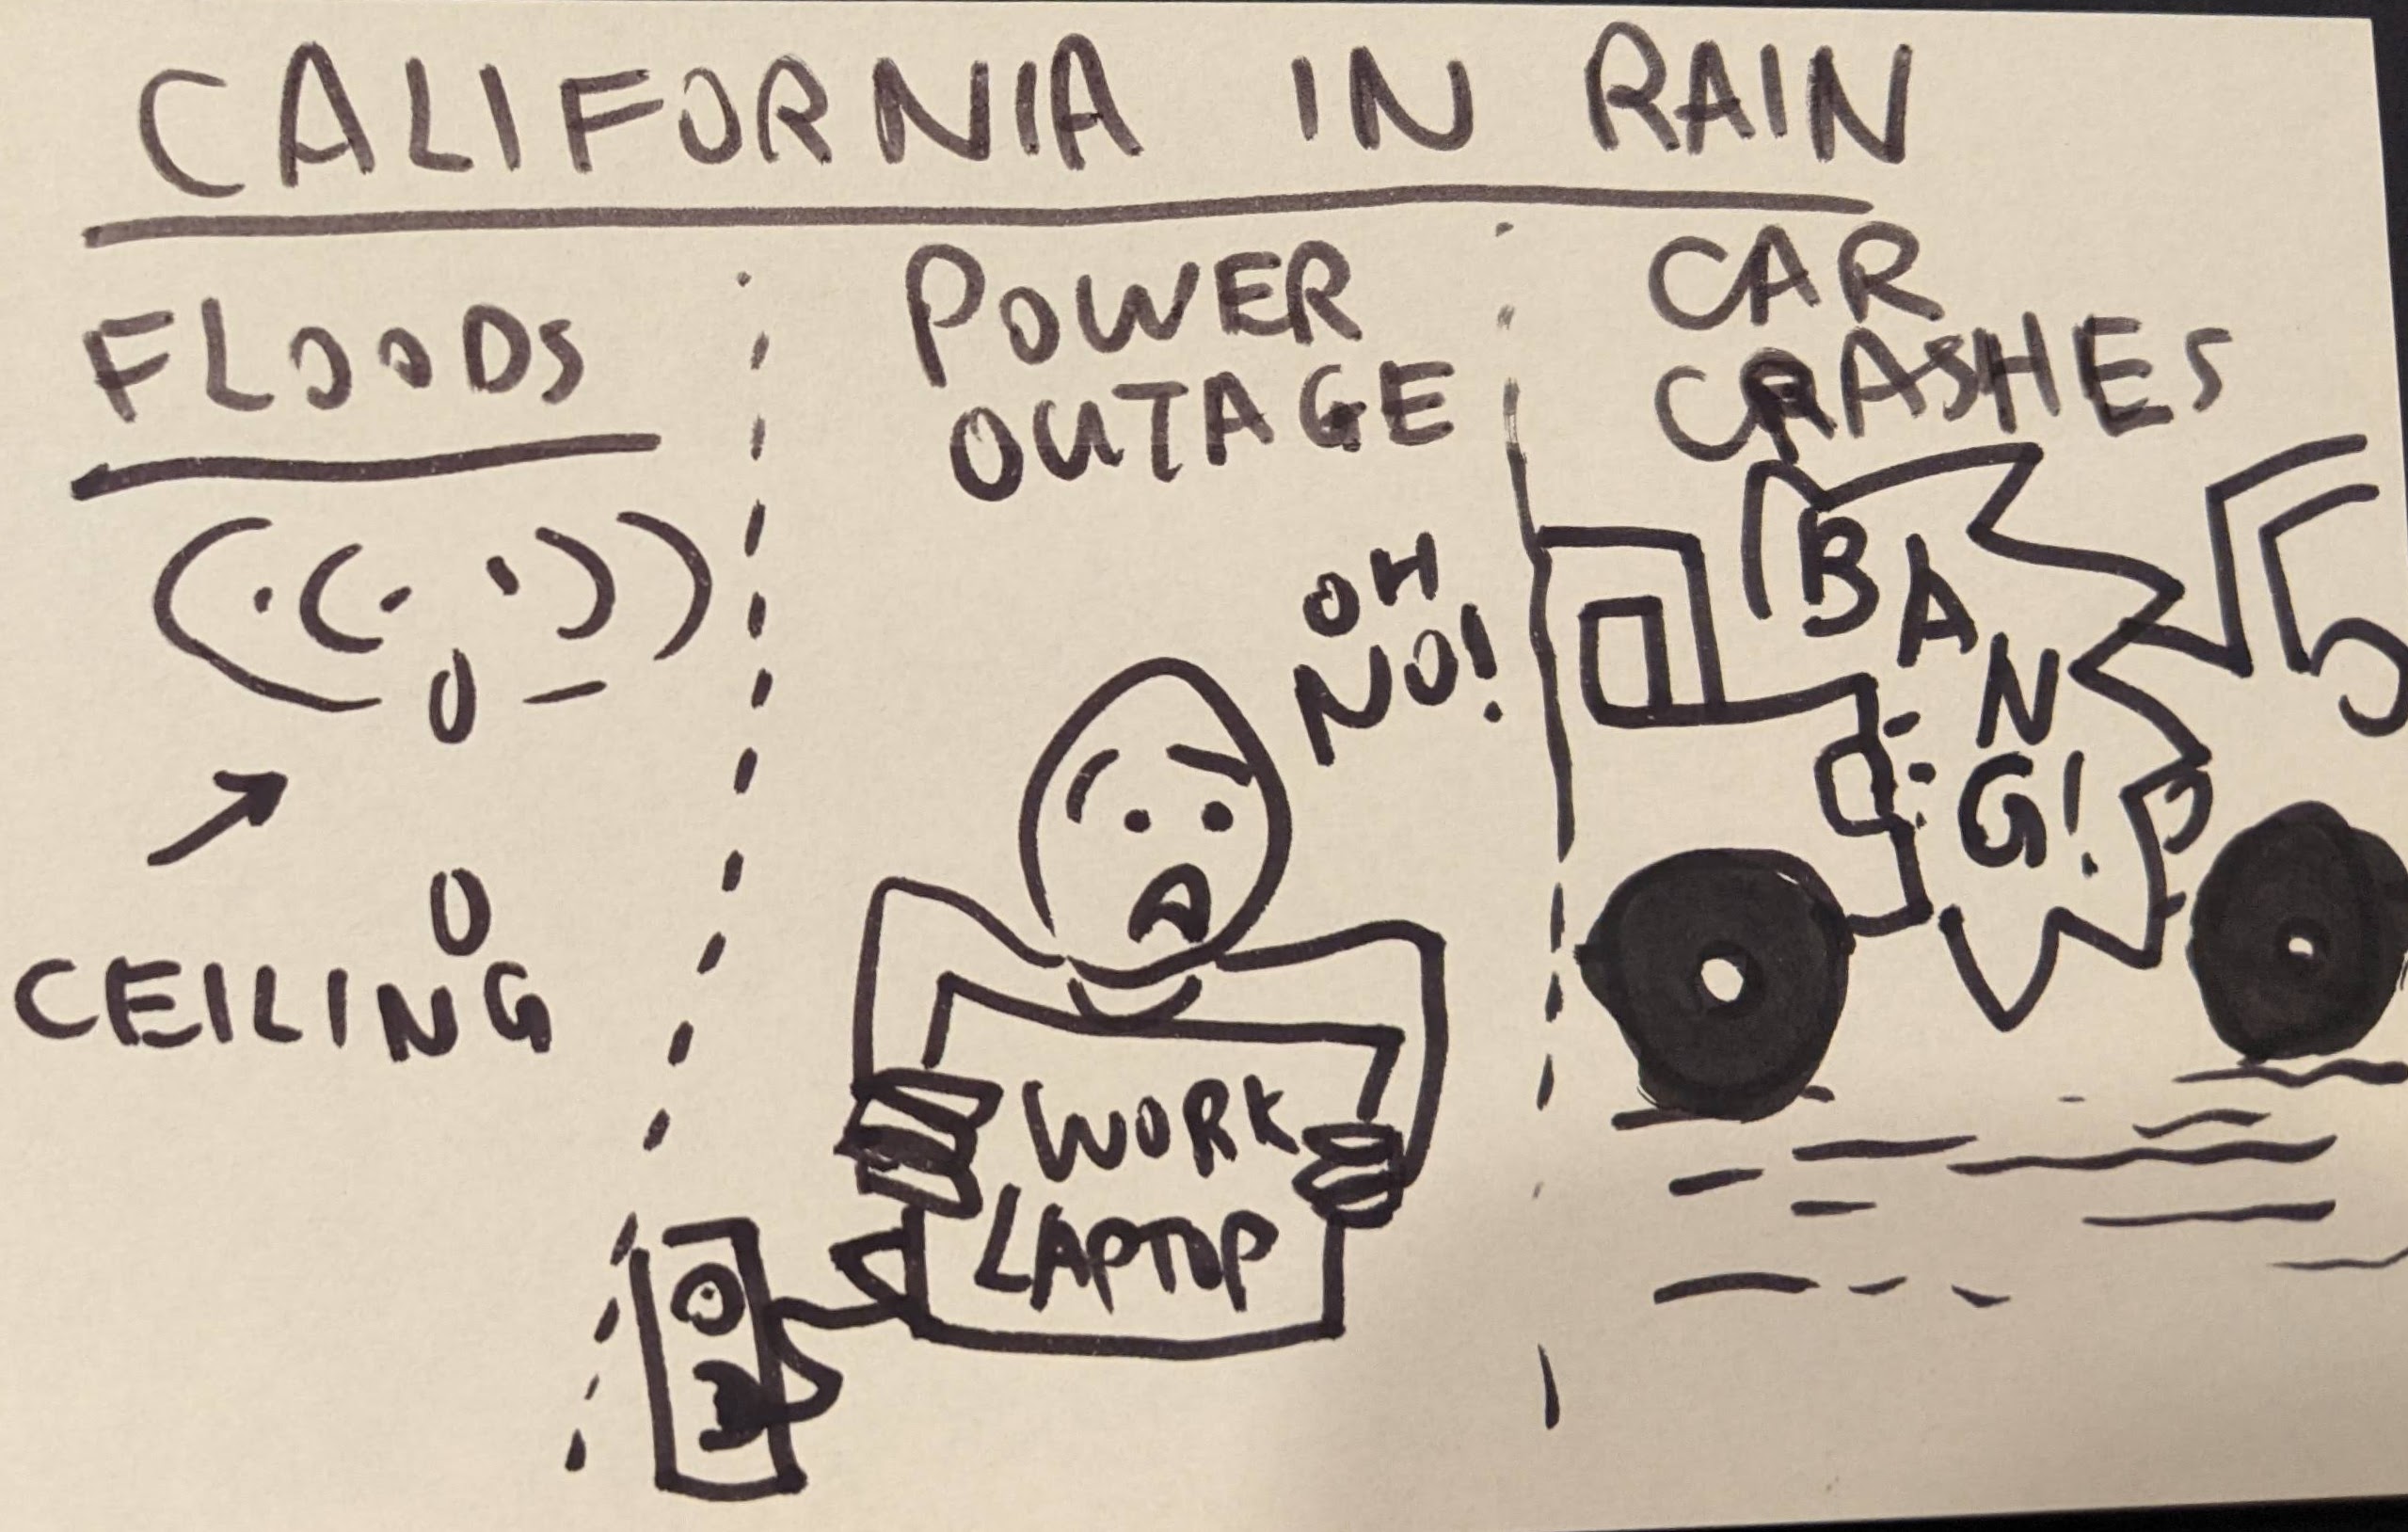 CALIFORNIA IN RAIN
FLOODS
CEILING
POWER
OUTAGE
OH
NO!
WORK
LAPTOP
CAR
CRASHES
BANG!